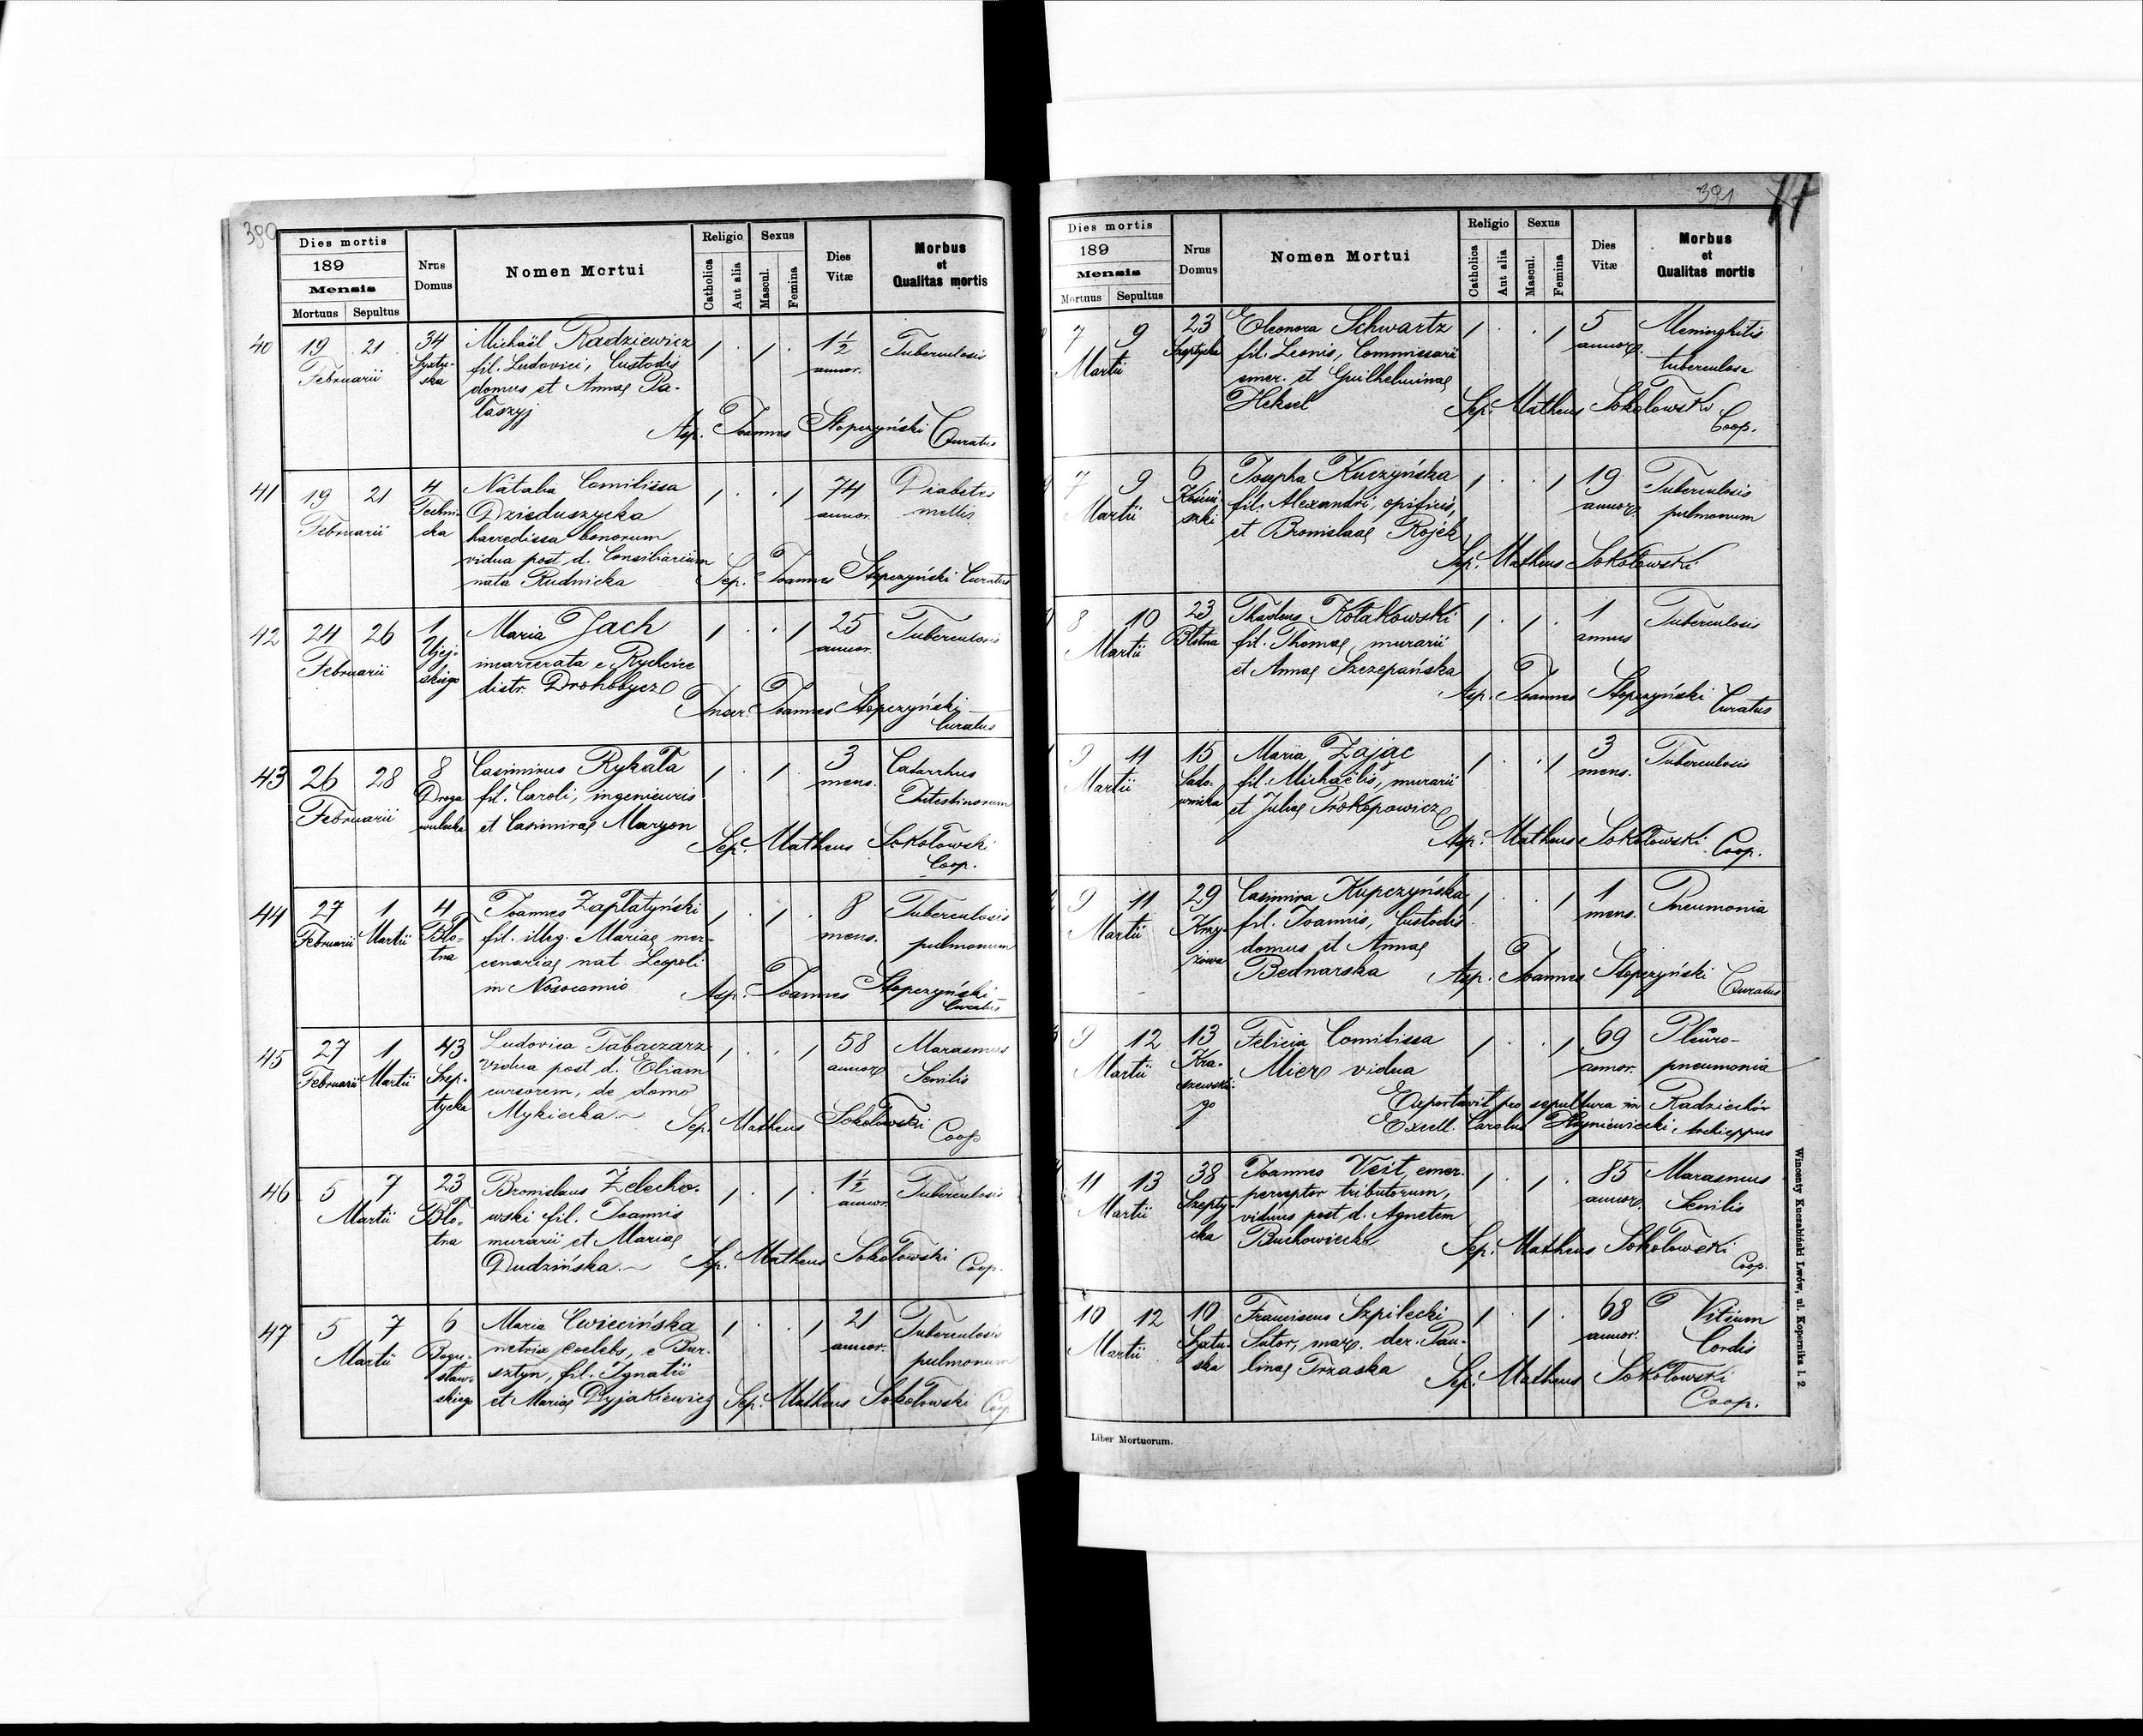 390
Dies mortis
189
Mensis
Mortuus Sepultus
Nrus Domus
Nomen Mortui
Religio
Catholica
Aut alia
Sexus
Mascul.
Femina
Dies Vitæ
Morbus et Qualitas mortis
40 19 21 34 Michaël Radziewicz 1 . 1 . 1½ Tuberculosis
Februarii fil. Ludovici, Custodis annor.
ska domus et Annae Pa-
taszyj
Asp. Joannes Stopczyński Curatus
41 19 21 4 Natalia Comitissa 1 . . 1 74 Diabetes
Februarii Techni- Dzieduszycka annor. mellis
cka haeredissa bonorum
vidua post d. Consiliarium
nata Rudnicka Sep. Joannes Stopczyński Curatus
42 24 26 1 Maria Jach 1 . . 1 25 Tuberculosis
Februarii Ujej- incarcerata e Rychcice annor.
skiego distr. Drohobycz
Joannes Stopczyński
Curatus
43 26 28 8 Casimirus Rykała 1 . 1 . 3 Catarrhus
Februarii Droga fil. Caroli, ingenieuris mens. Intestinorum
wulecka et Casimirae Maryon
Sep. Matheus Sokołowski
Coop.
44 27 1 4 Joannes Zapłatyński 1 . 1 . 8 Tuberculosis
Februarii Martii Bło- fil. illeg. Mariae mer- mens. pulmonum
tna cenariae nat. Leopoli
in Nosocomio Asp. Joannes Stopczyński
Curatus
45 27 1 43 Ludovica Tabaczarz 1 . . 1 58 Marasmus
Februarii Martii Szep- vidua post d. Eliam annor. Senilis
tycka cursorem, de domo
Mykiecka Sep. Matheus Sokołowski Coop
46 5 7 23 Bronislaus Żelecho- 1 . 1 . 1½ Tuberculosis
Martii Bło- wski fil. Joannis annor.
tna murarii et Mariae
Dudzińska Sep. Matheus Sokołowski Coop.
47 5 7 6 Maria Ćwiecińska 1 . . 1 21 Tuberculosis
Martii Bogu- coelebs, e Bur- annor. pulmonum
sław- sztyn, fil. Ignatii
skiego et Mariae Dyjakiewicz Sep. Matheus Sokołowski Coop
391
Dies mortis
189
Mensis
Mortuus Sepultus
Nrus Domus
Nomen Mortui
Religio
Catholica
Aut alia
Sexus
Mascul.
Femina
Dies Vitæ
Morbus et Qualitas mortis
7 9 23 Eleonora Schwartz 1 . . 1 5 Meninghitis
Martii Szeptycka fil. Leonis, Commissarii annor. tuberculosa
emer. et Guilhelminae
Heksel Sep. Matheus Sokołowski
Coop.
7 9 6 Josepha Kuczyńska 1 . . 1 19 Tuberculosis
Martii fil. Alexandri, opificis, annor. pulmonum
et Bronislaae Rojek
Sep. Matheus Sokołowski
8 10 23 Thadeus Kołakowski 1 . 1 . 1 Tuberculosis
Martii Błotna fil. Thomae, murarii annus
et Annae Szczepańska
Asp. Joannes Stopczyński Curatus
9 11 15 Maria Zając 1 . . 1 3 Tuberculosis
Martii Sado- fil. Michaëlis, murarii mens.
wnicka et Juliae Prokopowicz
Asp. Matheus Sokołowski Coop.
9 11 29 Casimira Kupczyńska 1 . . 1 1 Pneumonia
Martii Krzy- fil. Joannis, Custodis mens.
żowa domus et Annae
Bednarska Asp. Joannes Stopczyński Curatus
9 12 13 Felicia Comitissa 1 . . 1 69 Pleuro-
Martii Kra- Mier vidua annor. pneumonia
szewskie-
go Exportavit pro sepultura in Radziechów
Excell. Carolus Hryniewiecki, Archieppus
11 13 38 Joannes Veit, emer. 1 . 1 . 85 Marasmus
Martii Szepty- perceptor tributorum, annor. Senilis
cka viduus post d. Agnetem
Buchowiecka Sep. Matheus Sokołowski
Coop.
10 12 10 Franciscus Szpilecki 1 . 1 . 68 Vitium
Martii Sutor, mar. der. Pau- annor. Cordis
ska linae Trzaska Sep. Matheus Sokołowski
Coop.
Liber Mortuorum.
Wincenty Kuczabiński Lwów, ul. Kopernika l. 2